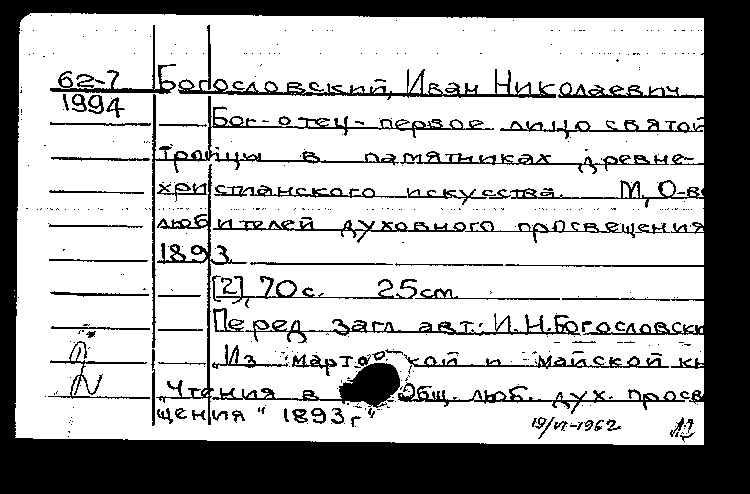 62-7 Богословский, Иван Николаевич
1994
Бог-отец- первое лицо святой
троицы в памятниках древне-
христианского искусства. М, О-во
любителей духовного просвещения
1893.
[2], 70 с. 25 cm.
Перед загл. авт.: И.Н.Богословски
„Из мартовской и майской кн
„Чтения в Общ. люб. дух. просв
щения" 1893 г"
19/VI-1962